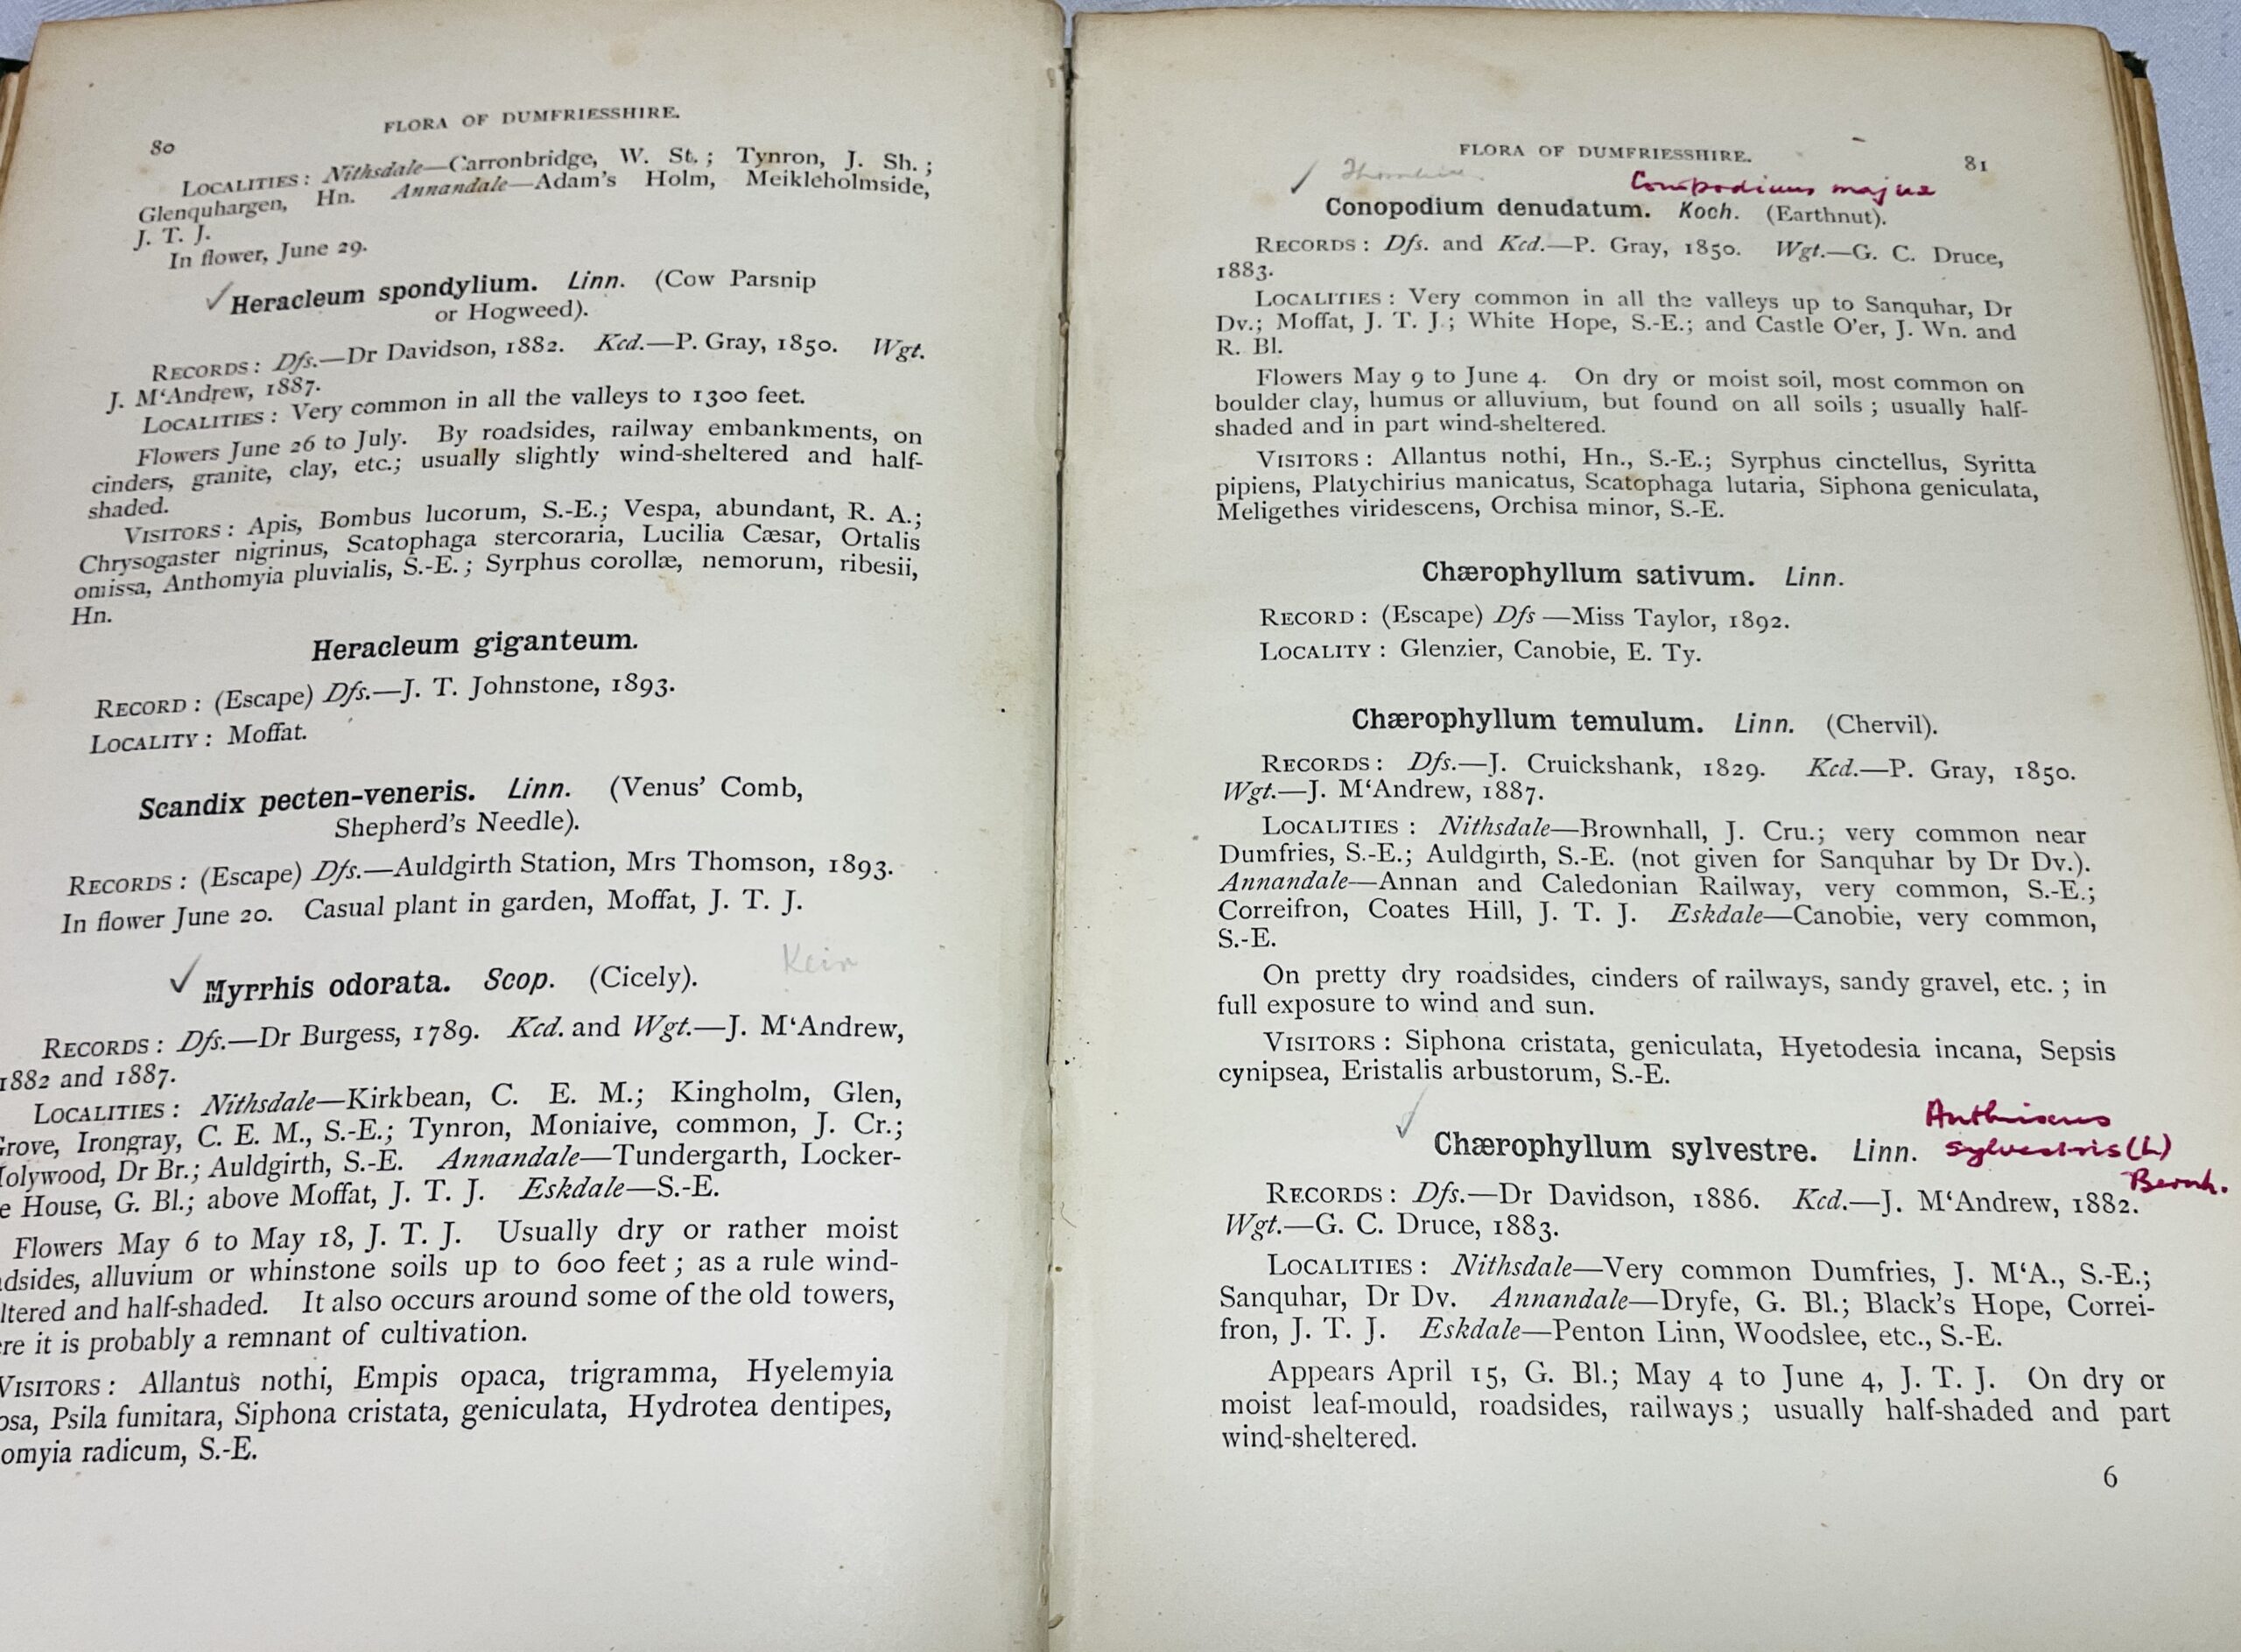 80
FLORA OF DUMFRIESSHIRE.
LOCALITIES: Nithsdale—Carronbridge, W. St.; Tynron, J. Sh.;
Glenquhargen, Hn. Annandale—Adam's Holm, Meikleholmside,
J. T. J.
In flower, June 29.
✓ Heracleum spondylium. Linn. (Cow Parsnip
or Hogweed).
RECORDS: Dfs.—Dr Davidson, 1882. Kcd.—P. Gray, 1850. Wgt.
J. M‘Andrew, 1887.
LOCALITIES: Very common in all the valleys to 1300 feet.
Flowers June 26 to July. By roadsides, railway embankments, on
cinders, granite, clay, etc.; usually slightly wind-sheltered and half-
shaded.
VISITORS: Apis, Bombus lucorum, S.-E.; Vespa, abundant, R. A.;
Chrysogaster nigrinus, Scatophaga stercoraria, Lucilia Cæsar, Ortalis
omissa, Anthomyia pluvialis, S.-E.; Syrphus corollæ, nemorum, ribesii,
Hn.
Heracleum giganteum.
RECORD: (Escape) Dfs.—J. T. Johnstone, 1893.
LOCALITY: Moffat.
Scandix pecten-veneris. Linn. (Venus' Comb,
Shepherd's Needle).
RECORDS: (Escape) Dfs.—Auldgirth Station, Mrs Thomson, 1893.
In flower June 20. Casual plant in garden, Moffat, J. T. J.
Keir
✓ Myrrhis odorata. Scop. (Cicely).
RECORDS: Dfs.—Dr Burgess, 1789. Kcd. and Wgt.—J. M‘Andrew,
1882 and 1887.
LOCALITIES: Nithsdale—Kirkbean, C. E. M.; Kingholm, Glen,
Grove, Irongray, C. E. M., S.-E.; Tynron, Moniaive, common, J. Cr.;
Holywood, Dr Br.; Auldgirth, S.-E. Annandale—Tundergarth, Locker-
e House, G. Bl.; above Moffat, J. T. J. Eskdale—S.-E.
Flowers May 6 to May 18, J. T. J. Usually dry or rather moist
adsides, alluvium or whinstone soils up to 600 feet; as a rule wind-
ltered and half-shaded. It also occurs around some of the old towers,
ere it is probably a remnant of cultivation.
VISITORS: Allantus nothi, Empis opaca, trigramma, Hyelemyia
osa, Psila fumitara, Siphona cristata, geniculata, Hydrotea dentipes,
omyia radicum, S.-E.
FLORA OF DUMFRIESSHIRE.
81
Conopodium majus
✓ Conopodium denudatum. Koch. (Earthnut).
RECORDS: Dfs. and Kcd.—P. Gray, 1850. Wgt.—G. C. Druce,
1883.
LOCALITIES: Very common in all the valleys up to Sanquhar, Dr
Dv.; Moffat, J. T. J.; White Hope, S.-E.; and Castle O'er, J. Wn. and
R. Bl.
Flowers May 9 to June 4. On dry or moist soil, most common on
boulder clay, humus or alluvium, but found on all soils; usually half-
shaded and in part wind-sheltered.
VISITORS: Allantus nothi, Hn., S.-E.; Syrphus cinctellus, Syritta
pipiens, Platychirius manicatus, Scatophaga lutaria, Siphona geniculata,
Meligethes viridescens, Orchisa minor, S.-E.
Chærophyllum sativum. Linn.
RECORD: (Escape) Dfs —Miss Taylor, 1892.
LOCALITY: Glenzier, Canobie, E. Ty.
Chærophyllum temulum. Linn. (Chervil).
RECORDS: Dfs.—J. Cruickshank, 1829. Kcd.—P. Gray, 1850.
Wgt.—J. M‘Andrew, 1887.
LOCALITIES: Nithsdale—Brownhall, J. Cru.; very common near
Dumfries, S.-E.; Auldgirth, S.-E. (not given for Sanquhar by Dr Dv.).
Annandale—Annan and Caledonian Railway, very common, S.-E.;
Correifron, Coates Hill, J. T. J. Eskdale—Canobie, very common,
S.-E.
On pretty dry roadsides, cinders of railways, sandy gravel, etc.; in
full exposure to wind and sun.
VISITORS: Siphona cristata, geniculata, Hyetodesia incana, Sepsis
cynipsea, Eristalis arbustorum, S.-E.
Anthriscus
✓ Chærophyllum sylvestre. Linn. sylvestris (L)
Bernh.
RECORDS: Dfs.—Dr Davidson, 1886. Kcd.—J. M‘Andrew, 1882.
Wgt.—G. C. Druce, 1883.
LOCALITIES: Nithsdale—Very common Dumfries, J. M‘A., S.-E.;
Sanquhar, Dr Dv. Annandale—Dryfe, G. Bl.; Black's Hope, Correi-
fron, J. T. J. Eskdale—Penton Linn, Woodslee, etc., S.-E.
Appears April 15, G. Bl.; May 4 to June 4, J. T. J. On dry or
moist leaf-mould, roadsides, railways; usually half-shaded and part
wind-sheltered.
6